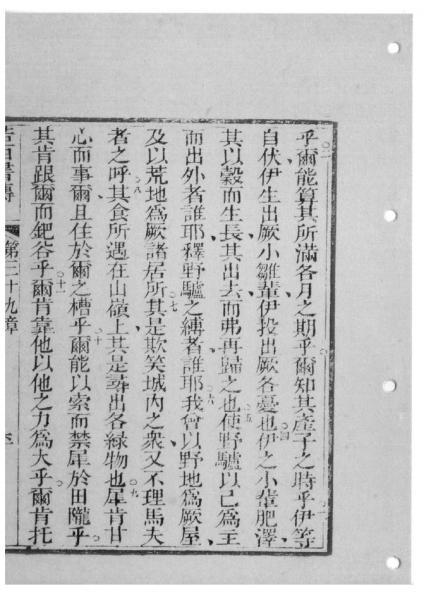 乎爾能算其所滿各月之期乎爾知其產子之時乎伊等
自伏伊生出厥小雛輩伊投出厥各憂也伊之小輩肥澤
其以穀而生長其出去而弗再歸之也使野驢以己為主
而出外者誰耶釋野驢之縛者誰耶我會以野地為厥屋
及以荒地為厥諸居所其是欺笑城內之衆又不理馬夫
者之呼其食所遇在山嶺上其是尋出各綠物也犀肯甘
心而事爾且住於爾之槽乎爾能以索而禁犀於田隴乎
其肯跟爾而鈀谷乎爾肯靠他以他之力為大乎爾肯托
第三十九章